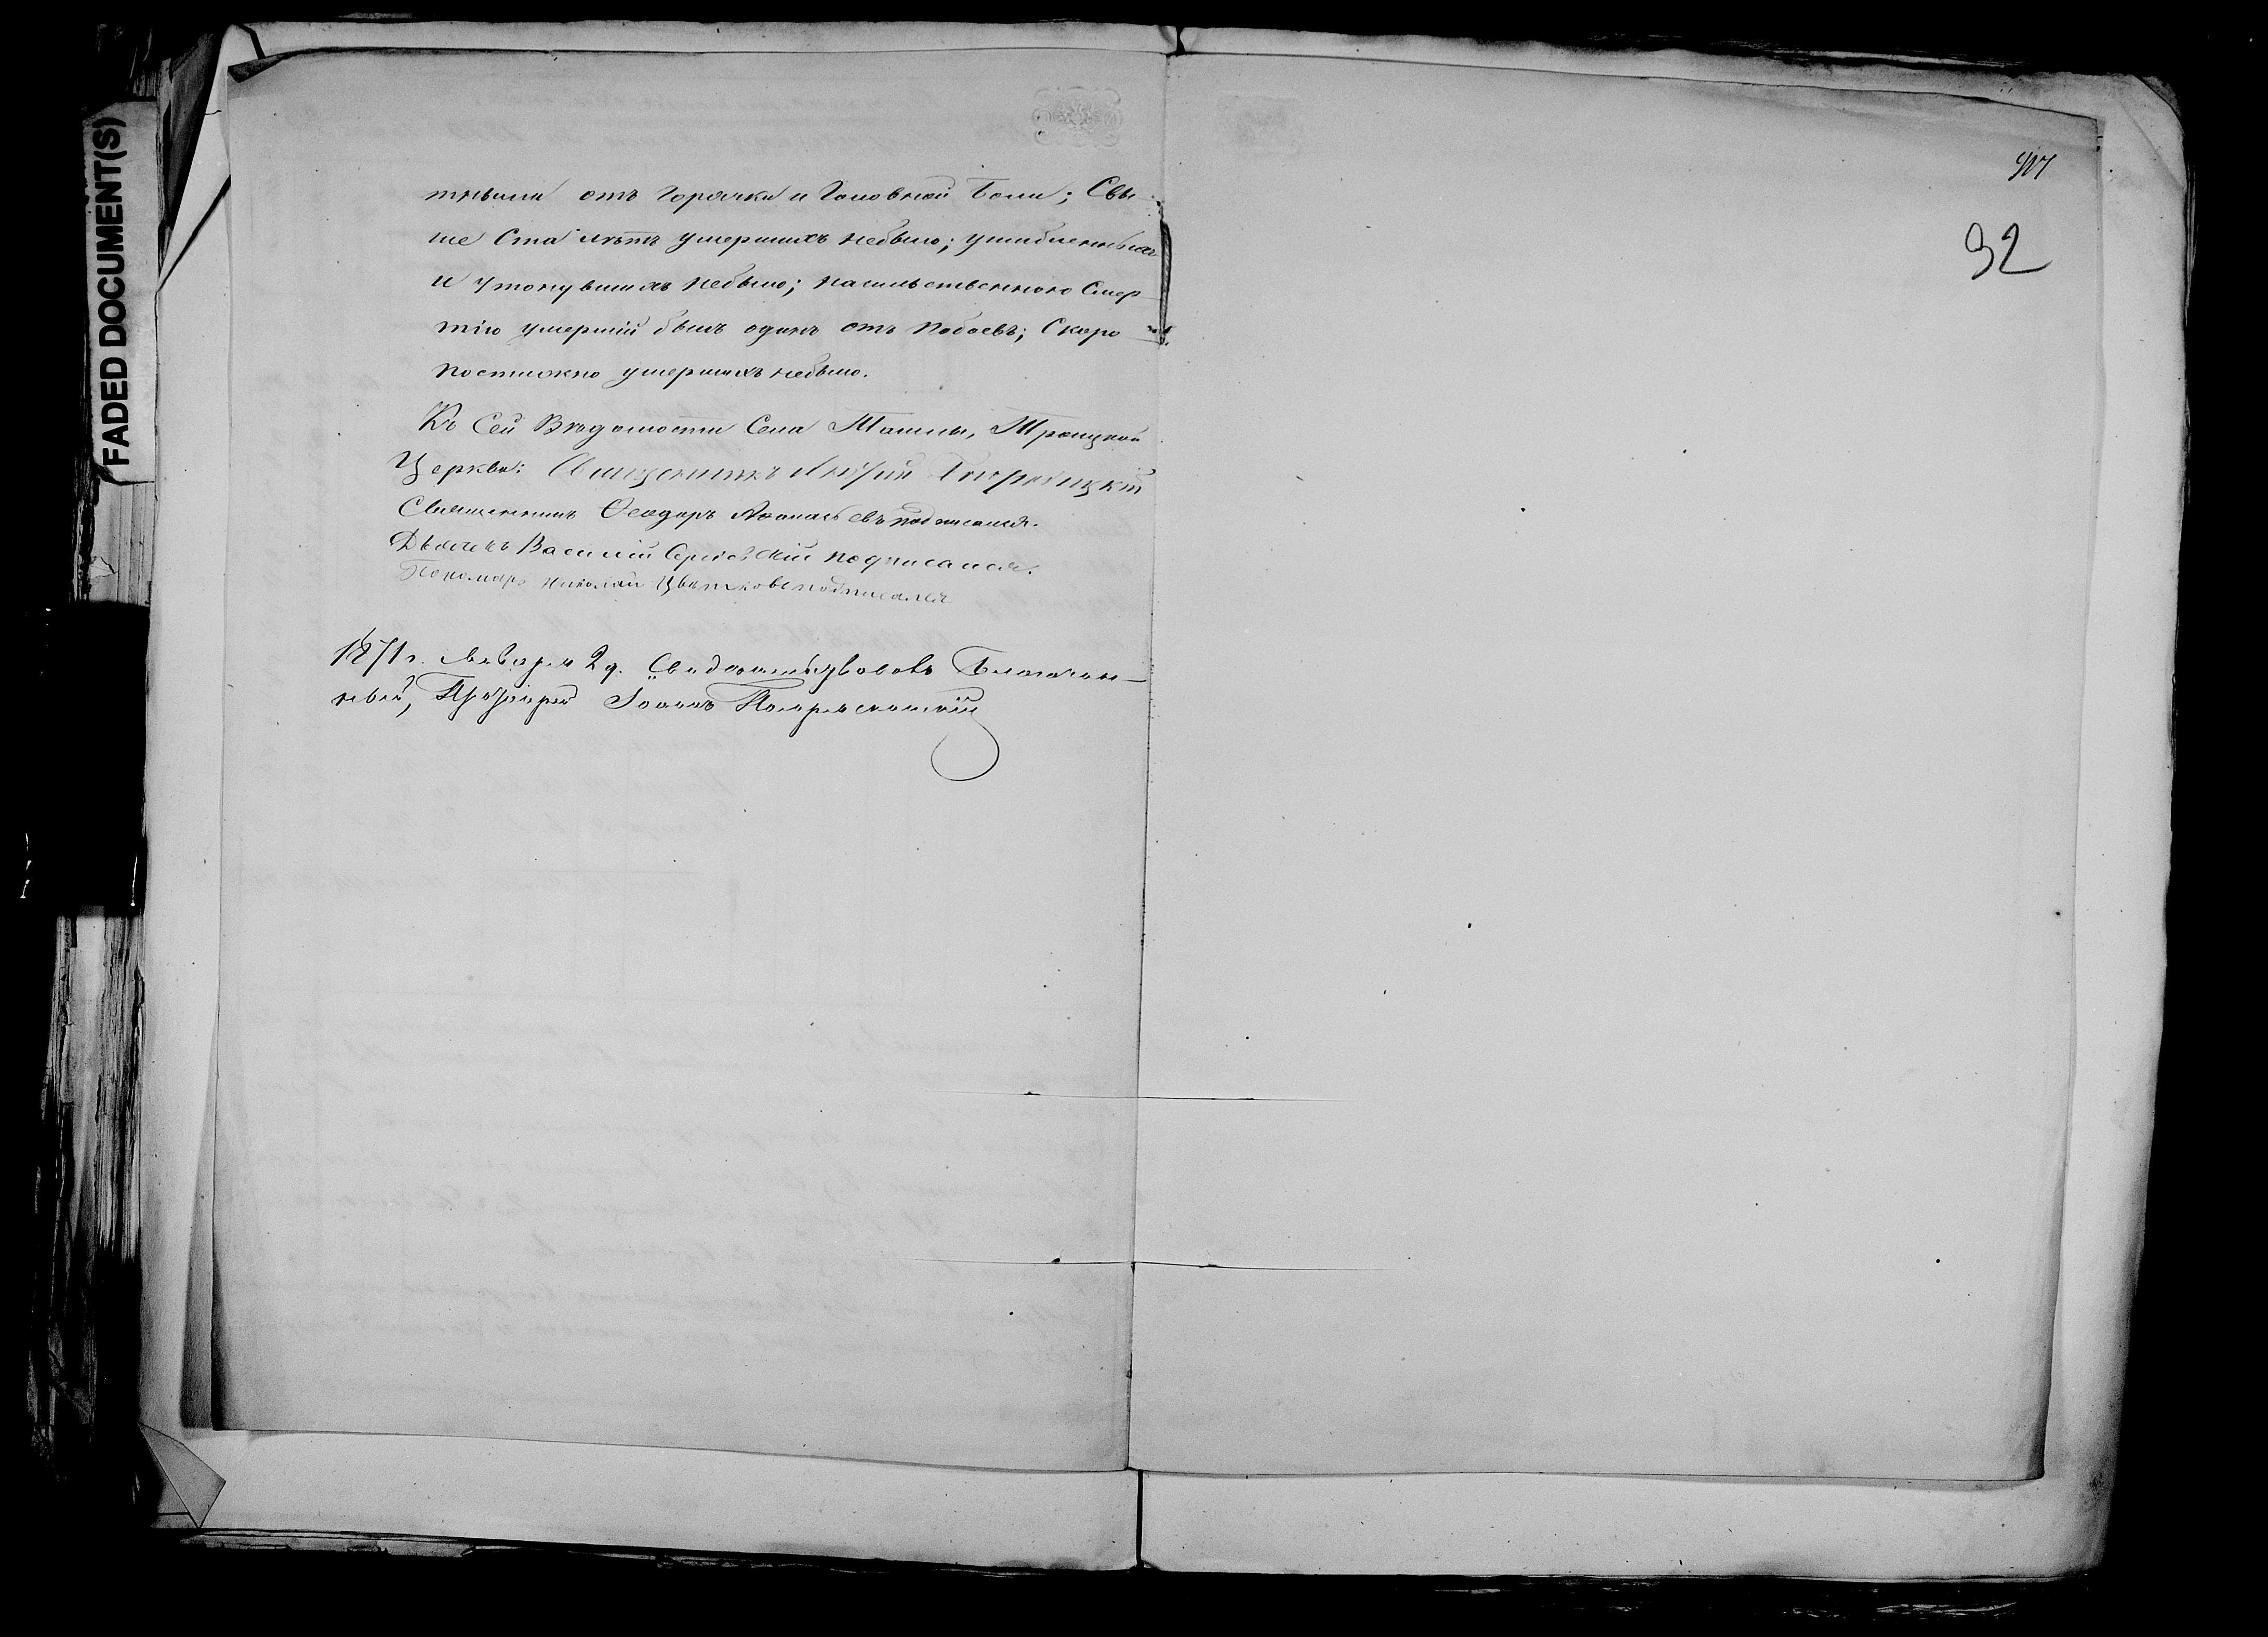 FADED DOCUMENT(S)
отъ горячки и Головной Боли; Свы-
ше Ста лѣтъ умершихъ небыло; ушибленныхъ
и утонувшихъ небыло; насильственною Смер
тію умершій былъ одинъ отъ побоевъ; Скоро
постижно умершихъ небыло.
Къ Сей Вѣдомости Села Ташлы, Троицкой
Церкви: Священникъ
Священникъ Ѳеодоръ Аѳанасьевъ подписался.
Дьячекъ Василій Сергіевскій подписался.
Пономарь Николай Цвѣтковъ подписался
1871 г. Января 2 д. Свидѣтельствовалъ Благочин-
ный, Протоіерей Іоаннъ
92